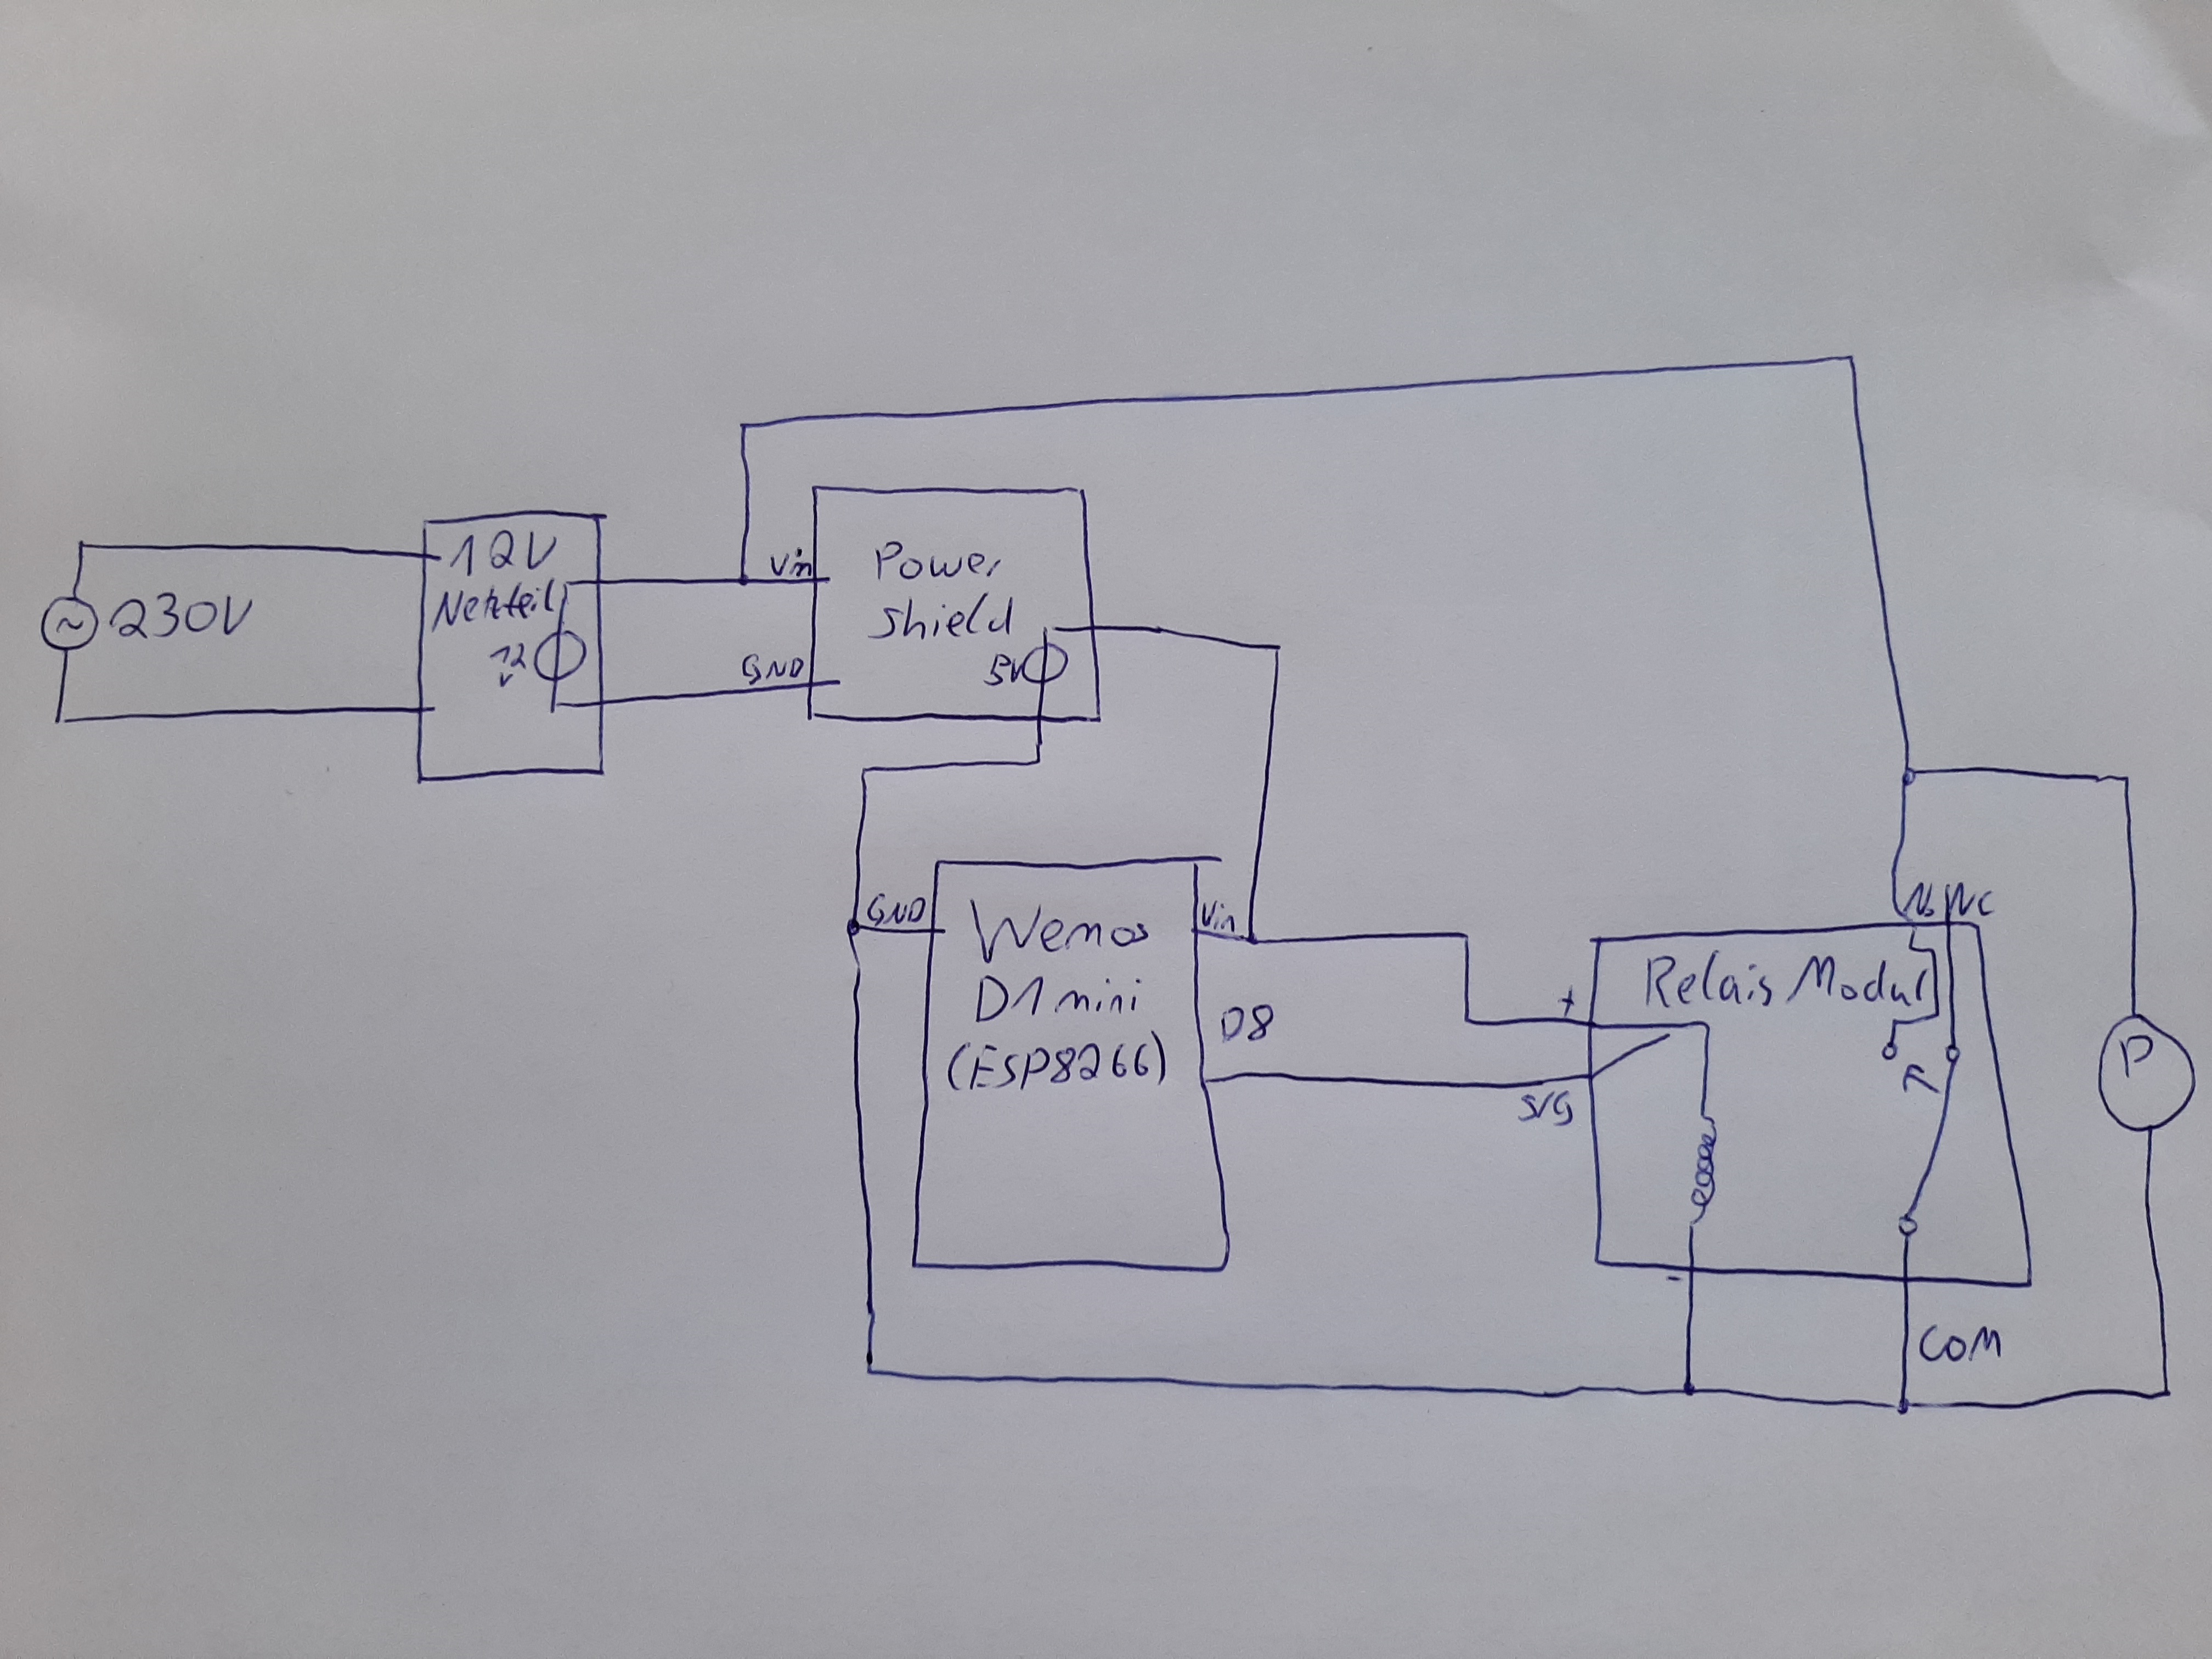 230V
12V
Netzteil
12
V
Vin
GND
Power
Shield
5V
GND
Wemos
D1 mini
(ESP8266)
Vin
D8
+
SIG
Relais Modul
NO NC
-
COM
P